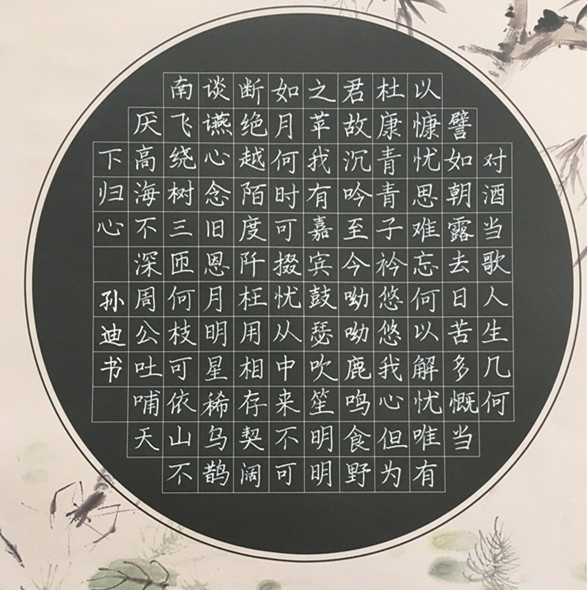 对酒当歌人生几何
譬如朝露去日苦多慨当
以慷忧思难忘何以解忧唯有
杜康青青子衿悠悠我心但为
君故沉吟至今呦呦鹿鸣食野
之苹我有嘉宾鼓瑟吹笙明明
如月何时可掇忧从中来不可
断绝越陌度阡枉用相存契阔
谈䜩心念旧恩月明星稀乌鹊
南飞绕树三匝何枝可依山不
厌高海不深周公吐哺天
下归心 孙迪书